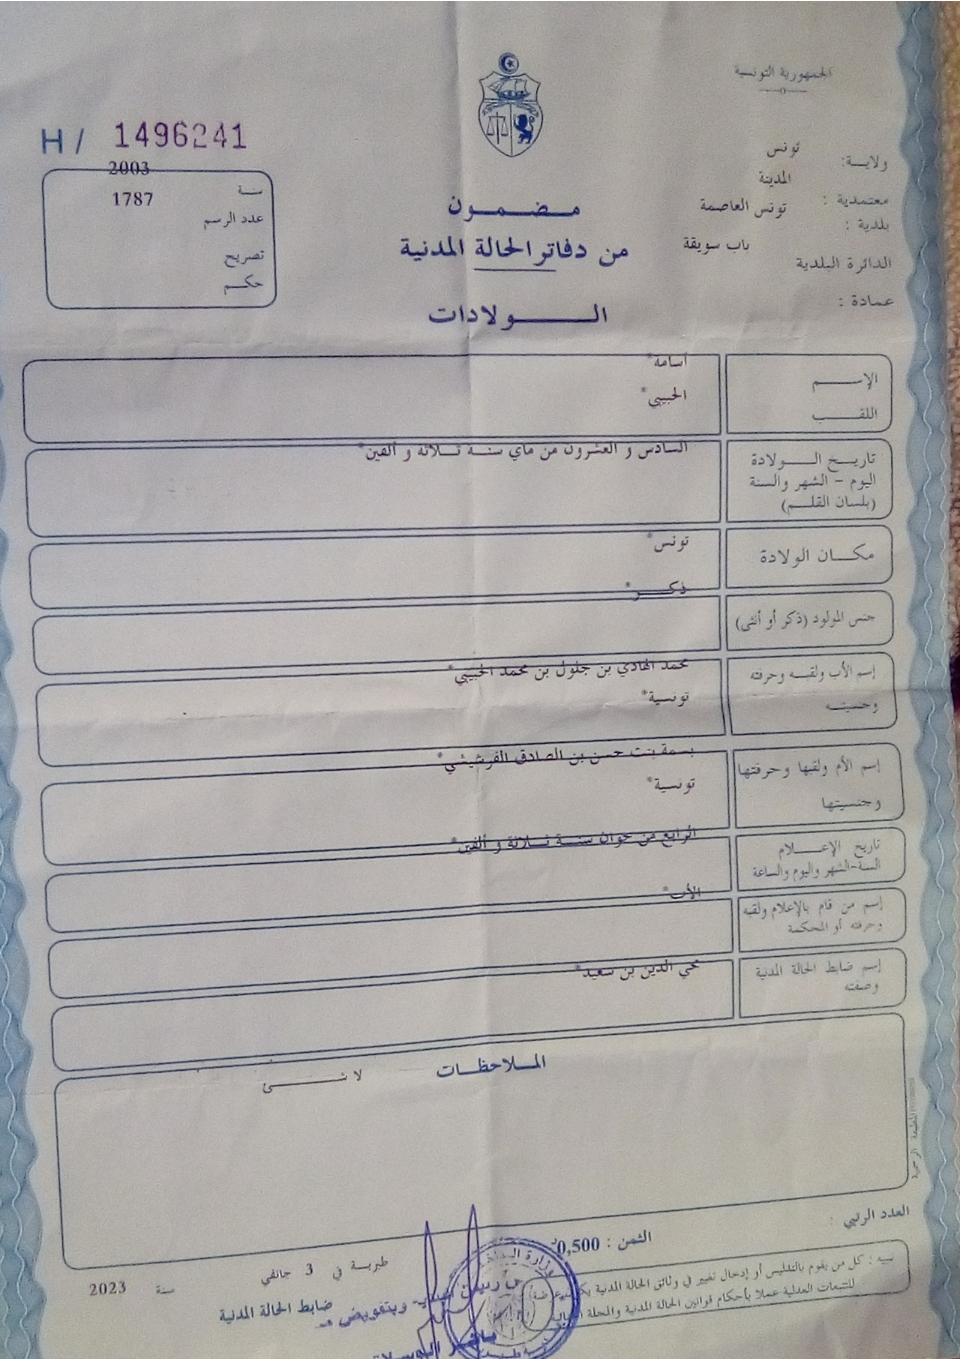 الجمهورية التونسية
H / 1496241
ولايـة: تونس
المدينة
معتمدية :
بلدية : تونس العاصمة
الدائرة البلدية باب سويقة
عمادة :
سنة 2003
عدد الرسم 1787
تصريح
حكم
مضمون
من دفاتر الحالة المدنية
الـولادات
الإسم أسامة*
اللقب الحبيبي*
تاريخ الولادة
اليوم - الشهر والسنة
(بلسان القلم)
السادس و العشرون من ماي سنة ثلاثة و ألفين*
مكان الولادة تونس*
جنس المولود (ذكر أو أنثى) ذكر*
إسم الأب ولقبه وحرفته
وجنسيته
محمد الهادي بن جلول بن محمد الحبيبي*
تونسية*
إسم الأم ولقبها وحرفتها
وجنسيتها
بسمة بنت حسن بن الصادق
تونسية*
تاريخ الإعلام
السنة-الشهر واليوم والساعة
الرابع من جوان سنة ثلاثة و ألفين*
إسم من قام بالإعلام ولقبه
وحرفته أو المحكمة
الأب*
إسم ضابط الحالة المدنية
وصفته
محي الدين بن سعيد*
الملاحظات
لا شئ
المطبعة الرسمية
العدد الرتبي :
الثمن : 0,500
طبربة في 3 جانفي سنة 2023
ضابط الحالة المدنية
وبتفويض
تنبيه : كل من يقوم بالتدليس أو إدخال تغيير في وثائق الحالة المدنية
للتتبعات العدلية عملا بأحكام قوانين الحالة المدنية والمجلة